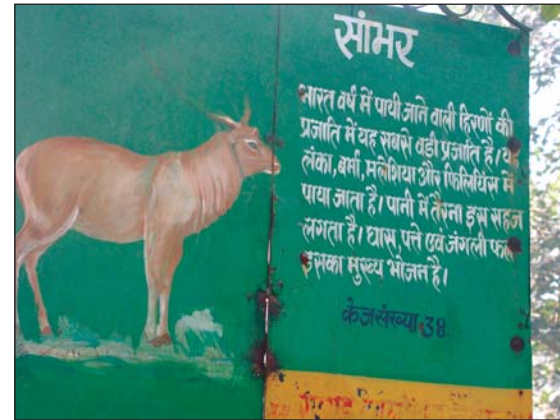 सांभर
भारत वर्ष में पायी जाने वाली हिरणों की
प्रजाति में यह सबसे बडी प्रजाति है। यह
लंका, बर्मा, मलेशिया और फिलिपिंस में
पाया जाता है। पानी में तैरना इसे सहज
लगता है। घास, पत्ते एवं जंगली फल
इसका मुख्य भोजन है।
केज संख्या 38